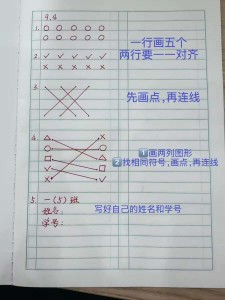 9.4
1. 〇 〇 〇 〇 〇
〇 〇 〇 〇 〇
一行画五个
两行要一一对齐
2. ✓ ✓ ✓ ✓ ✓
× × × × ×
3.
先画点,再连线
4. △ ×
〇 〇
□ △
✓ □
× ✓
1画两列图形
2找相同符号,画点,再连线
5. 一(5)班
姓名:
学号:
写好自己的姓名和学号